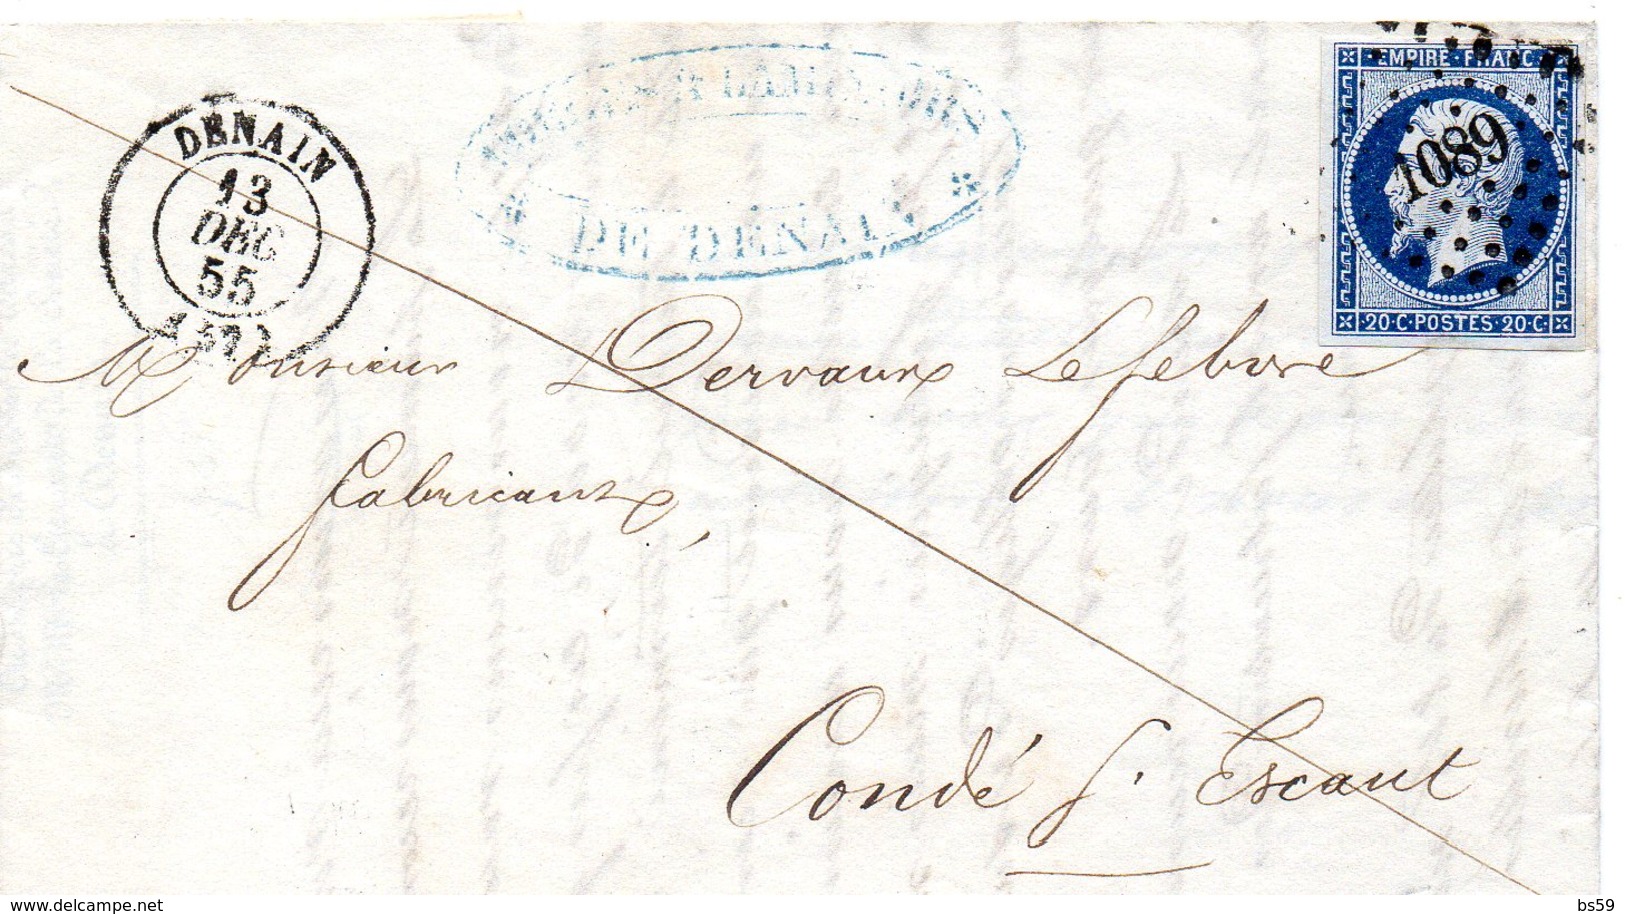 DENAIN
13
DEC
55
(57)
DE DENAIN
EMPIRE FRANC
1089
20·C·POSTES·20·C·
Monsieur Dervaux Lefebvre
fabricant,
Condé s. Escaut
www.delcampe.net
bs59